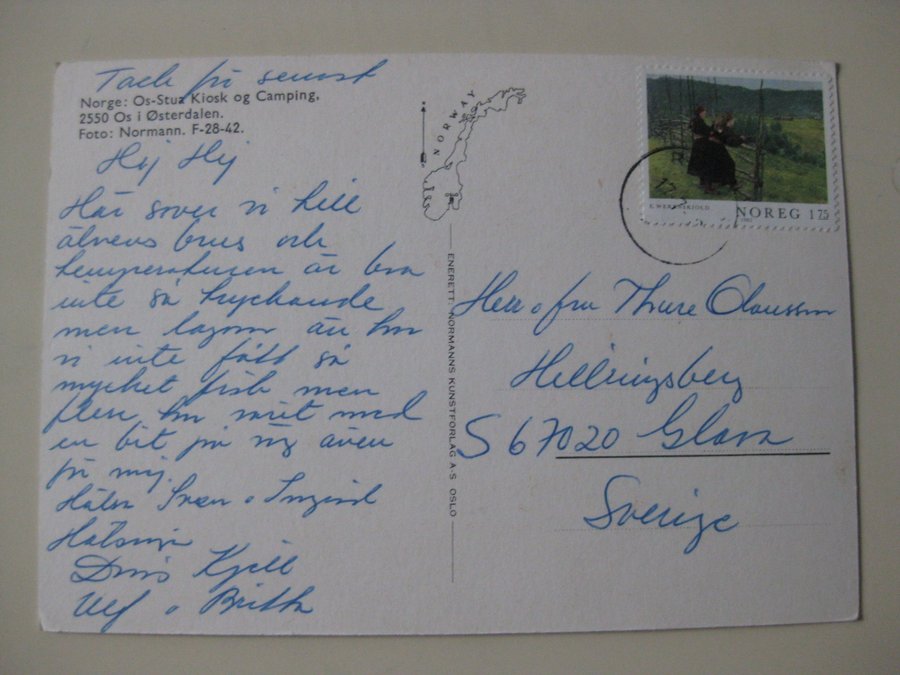 Tack för senast
Norge: Os-Stua Kiosk og Camping,
2550 Os i Østerdalen.
Foto: Normann. F-28-42.
Hej Hej
Här sover vi till
älvens brus och
temperaturen är bra
inte så tryckande
men lagom än har
vi inte fått så
mycket fisk men
flera har varit med
en bit på väg även
för mig.
Hälsa Sven o Ingrid
Hälsningar
Kjell
Ulf o Britta
NORWAY
ENERETT: NORMANNS KUNSTFORLAG A-S OSLO
E. WERENSKIOLD
NOREG 175
Herr o fru Thure Olausson
Hillringsberg
S 67020 Glava
Sverige